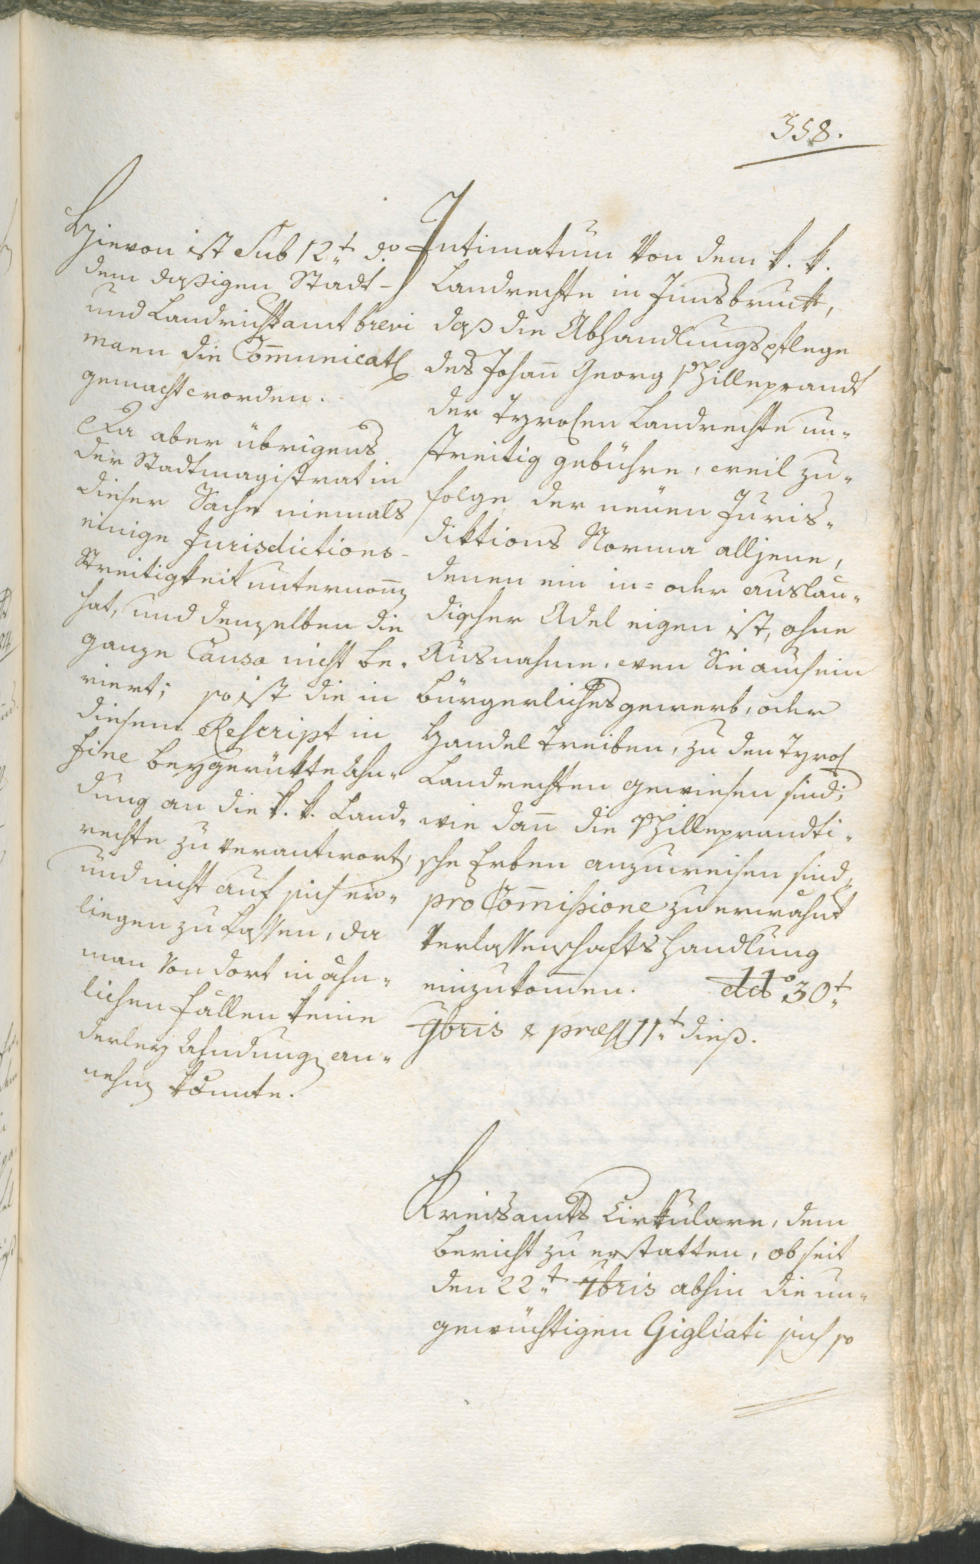 358.
Hievon ist Sub 12.t d.o
dem dasigen Stadt-
und Landrichteramt brevi
manu die Com̄unicat
gemacht worden.
Da aber übrigens
der Stadtmagistrat in
dieser Sache niemals
einige Jurisdictions-
Streitigkeit unternom̄
hat, und denselben die
ganze Causa nicht be-
riert; so ist die in
diesem Rescript in
fine beygerükte Ahn-
dung an die k. k. Land-
rechte zu verantwort,
und nicht auf sich er-
liegen zu lassen, da
man von dort in ähn-
lichen Fällen keine
derley Ahndung an-
nehm könnte.
Intimatum Von dem k. k.
Landrechte in Innsbruck,
daß die Abhandlungspflege
des Johañ Georg Hilleprandt
der Tyrolen Landrechte un-
streitig gebühre, weil zu-
folge der neüen Juris-
diktions Norma alljene,
denen ein in- oder auslän-
discher Adel eigen ist, ohne
Ausnahme, wen Sie auch ein
bürgerliches gewerb, oder
Handel treiben, zu den Tyrol
Landrechten gewiesen sind;
wie dañ die Hilleprandti-
sche Erben anzuweisen sind,
pro Com̄ißione zu erwähnt
Verlassenschafts Handlung
einzukom̄en. ddo 30.t
9bris & præs 11.t dieß.
Kreisamts Cirkulare, dem
bericht zu erstatten, ob seit
den 22.t 7bris abhin die un-
gewichtigen Gigliati sich so